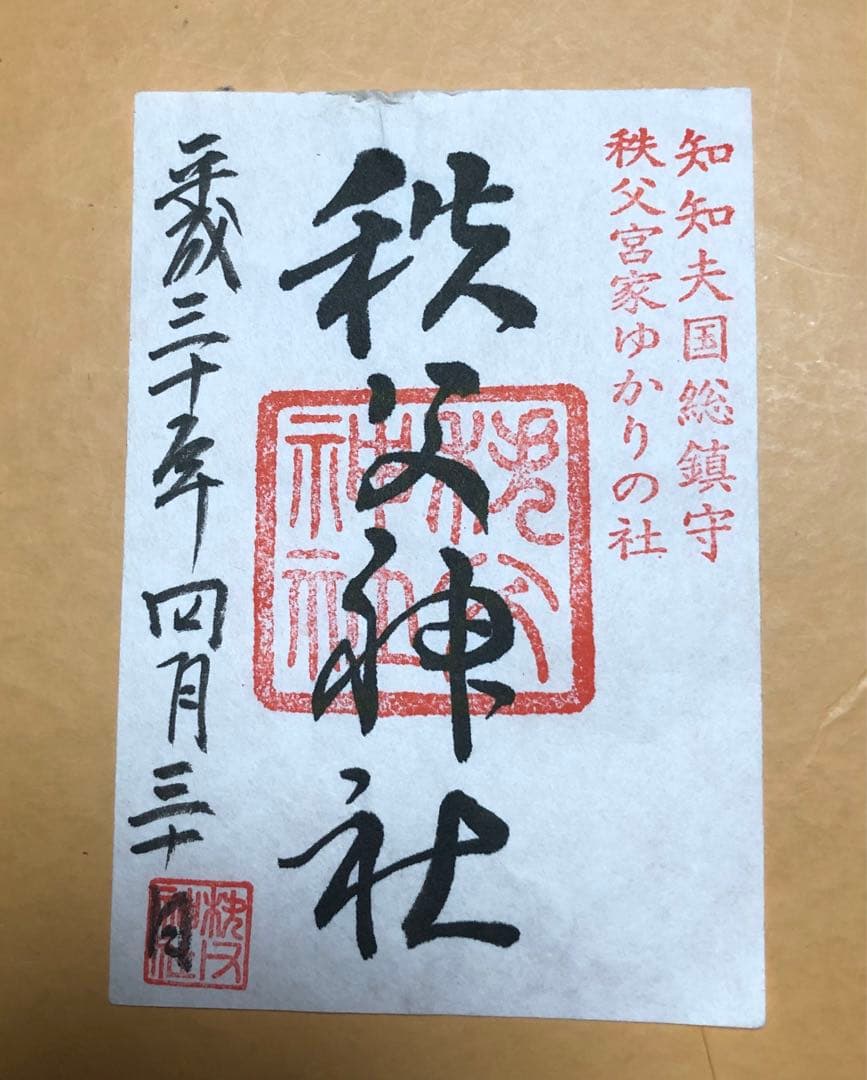 知知夫国総鎮守
秩父宮家ゆかりの社
秩父神社
秩父神社
平成三十年四月三十日
秩父神社